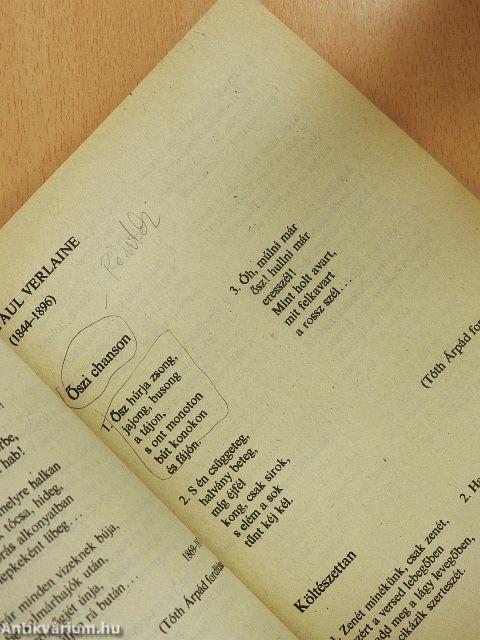 PAUL VERLAINE
(1844–1896)
Őszi chanson
1. Ősz húrja zsong,
jajong, busong
a tájon,
s ont monoton
bút konokon
és fájón.
2. S én csüggeteg,
halvány beteg,
míg éjfél
kong, csak sírok,
s elém a sok
tűnt kéj kél.
3. Óh, múlni már
ősz! hullni már
eresszél!
Mint holt avart,
mit felkavart
a rossz szél...
(Tóth Árpád
Költészettan
1. Zenét minékünk, csak zenét,
a versed lebegőben
meg a lágy levegőben,
szerteszét.
2.
hab!
melyre halkan
tócsa, hideg,
alkonyatban
libeg...
minden vizeknek búja,
után,
ujja
rá bután...
(Tóth Árpád fordítása
Antikvarium.hu